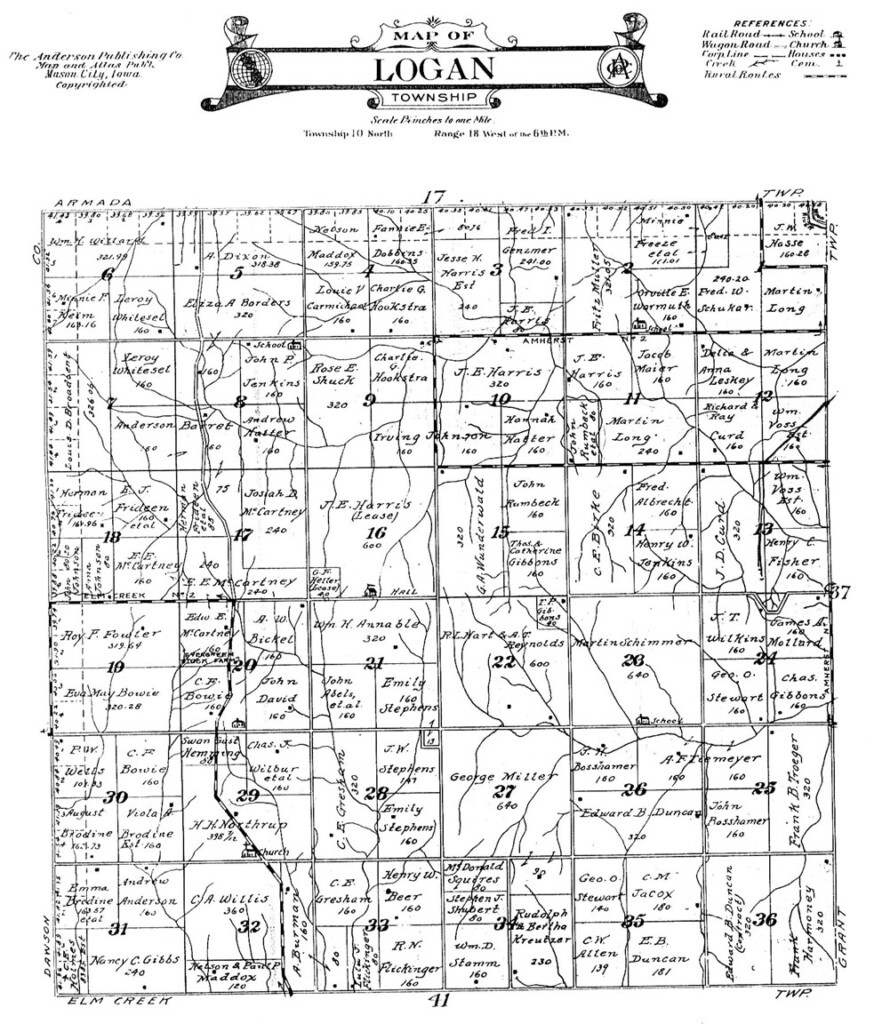 MAP OF
LOGAN
TOWNSHIP
The Anderson Publishing Co.
Map and Atlas Publ.
Mason City, Iowa
Copyrighted
Township 10 North Range 18 West of the 6th P.M.
REFERENCES:
Rail Road School
Wagon Road Church
Corp Line Houses
Creek Cem.
Rural Routes
ARMADA
17
TWP.
CO.
TWP.
Wm. H. Willard
321.99
6
Minnie F.
Keim
Leroy
Whitesel
160
A. Dixon
318.38
5
Eliza A Borders
320
Maddox
159.75
Fannie E.
Dobbins
4
Louis V
Carmichael
160
Charlie G.
Hookstra
160
Jesse H.
Harris
Est
240
80.16
Fred I.
Genzmer
241.00
3
J. E.
Harris
80
Fritz Muller
Minnie
Freeze
etal
2
Orville E.
Wormuth
160
School
240.20
Fred. W.
Schukar
J. W.
Hosse
160.28
1
Martin
Long
AMHERST
No 2
Leroy
Whitesel
160
Louis D. Broadbent
326.06
7
Anderson Barret
160
School
John P.
Jenkins
160
8
Andrew
Hatter
160
Rose E.
Shuck
320
Charlie
G.
Hookstra
160
9
Irving Johnson
160
J. E. Harris
320
10
Hannah
Hatter
160
J. E.
Harris
160
Jacob
Maier
160
11
John
Rumbeck
etal 80
Martin
Long
240
Delia &
Anna
Leskey
160
Martin
Long
160
12
Richard
Ray
Curd
160
Wm.
Voss
Est.
160
Herman
Frideen
E. J.
Frideen
160
etal
18
Herman
Frideen
etal
85
75
Josiah D.
McCartney
240
17
John
Johnson
Arna
Johnson
80
E. E.
McCartney
240
E. E. McCartney
240
J. E. Harris
(Lease)
16
600
G. F.
Heller
(Lease)
40
HALL
320
G. A. Wunderwald
15
John
Rumbeck
160
Thos. &
Catherine
Gibbons
160
C. E. Birke
320
Fred.
Albrecht
160
14
Henry W.
Jenkins
160
J. D. Curd
320
Wm.
Voss
Est.
160
13
Henry C.
Fisher
160
ELM CREEK
No 2
37
Roy F. Fowler
319.64
19
Eva May Bowie
320.28
Edw. E.
McCartney
160
EVERGREEN
STOCK FARM
20
C. E.
Bowie
160
A. W.
Bickel
160
John
David
160
Wm H. Annable
320
21
John
Abels,
et.al.
160
Emily
Stephens
160
T. P.
Gibbons
40
R. L. Hart & A. G.
Reynolds
22
600
Martin Schimmer
23
640
School
J. T.
Wilkins
160
James A.
Mollard
160
24
Geo. O.
Stewart
160
Chas.
Gibbons
160
AMHERST No
P. W.
Wells
C. E.
Bowie
160
30
August
Brodine
Viola A.
Brodine
Est 160
Swan Gust
Hemming
80
Chas. J.
Wilbur
etal
160
29
H. H. Northrup
Church
C. E. Gresham
320
13
J. W.
Stephens
147
28
Emily
Stephens
160
George Miller
27
640
J. H.
Bosshamer
160
A. F. Tiemeyer
160
26
Edward B. Duncan
320
John
Bosshamer
160
25
Frank B. Troeger
320
Emma
Brodine
163.57
etal
Andrew
Anderson
160
31
C. E.
Holmes
Nancy C. Gibbs
240
C. A. Willis
360
32
A. Burman
160
Nelson & Paul P.
Maddox
120
C. E.
Gresham
160
Henry W.
Beer
160
33
80
Lulu J.
Flickinger
80
R. N.
Flickinger
160
McDonald
Squires
80
Stephen J.
Shubert
80
34
Wm. D.
Stamm
160
Rudolph
& Bertha
Kreutzer
230
Geo. O.
Stewart
140
C. M
Jacox
180
35
C. W.
Allen
139
E. B.
Duncan
181
Edward B. Duncan
(Contract)
320
36
Frank
Harmoney
320
DAWSON
GRANT
ELM CREEK
41
TWP.